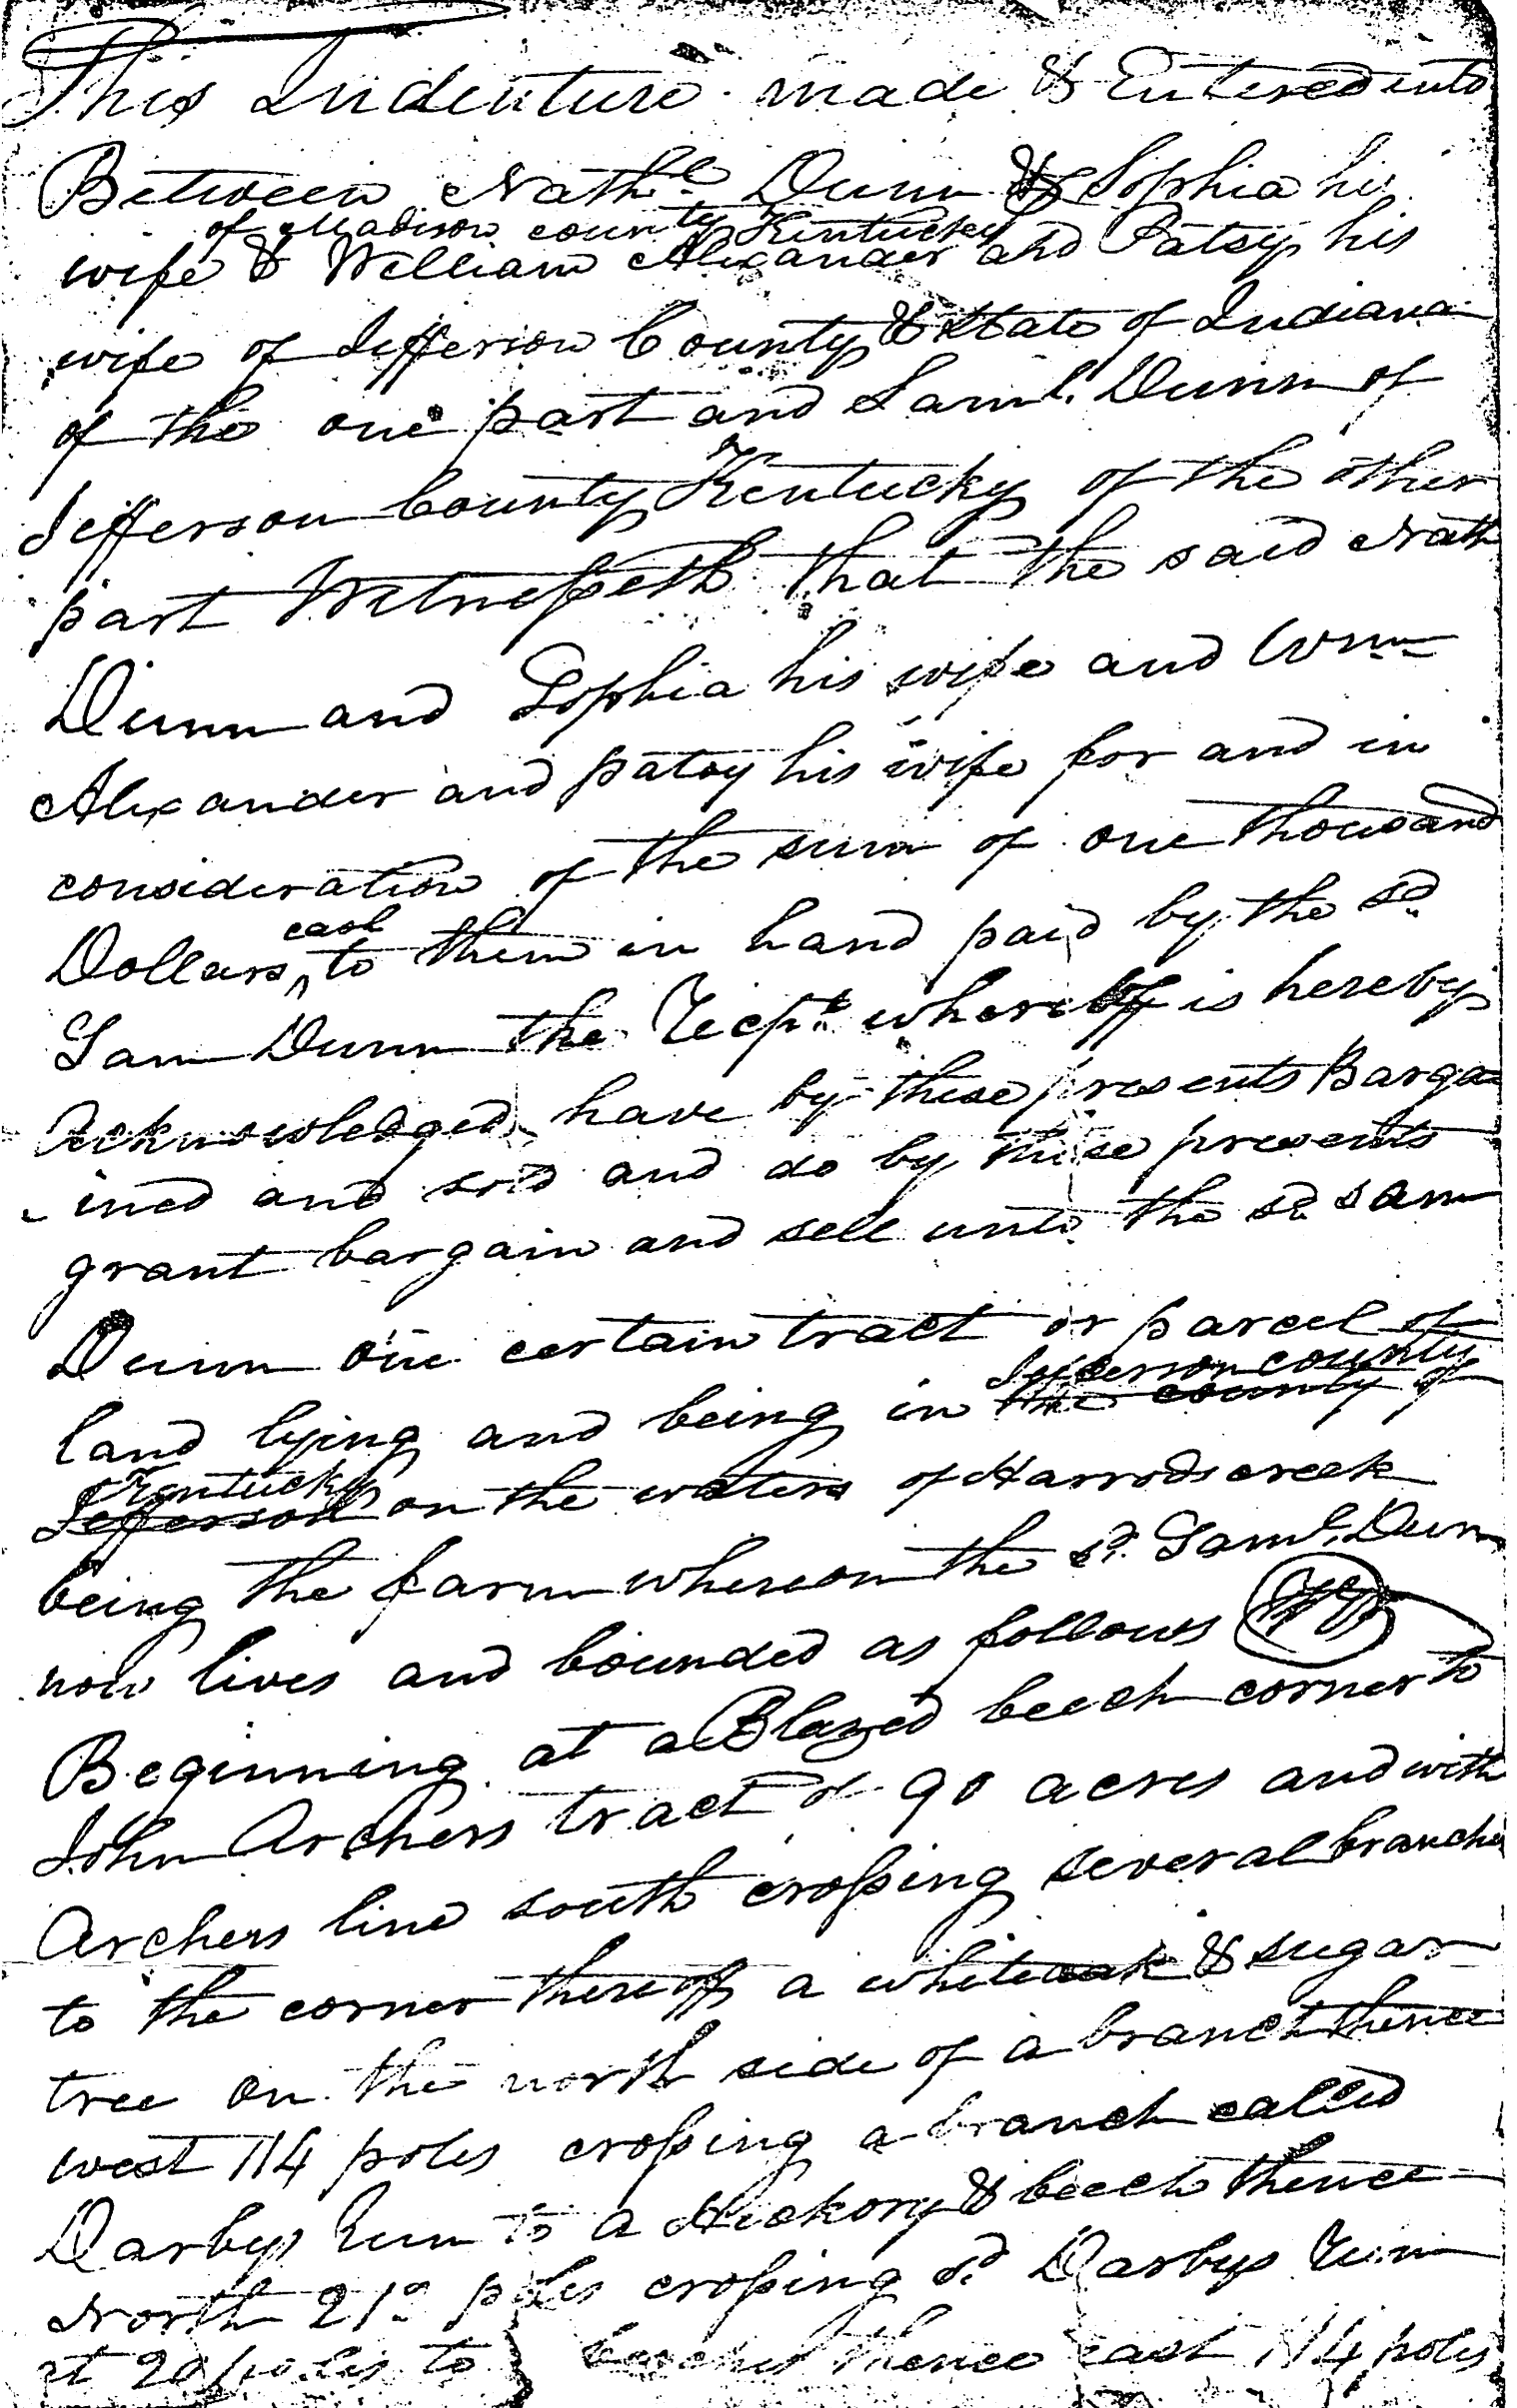 This Indenture made & Entered into
Between Nathl. Dunn & Sophia his
of Madison county Kentucky
wife & William Alexander and Patsy his
wife of Jefferson County & State of Indiana
of the one part and Saml. Dunn of
Jefferson County Kentucky of the other
part Witnesseth that the said Nath
Dunn and Sophia his wife and Wm
Alexander and patsy his wife for and in
consideration of the sum of one thousand
cash
Dollars ^ to them in hand paid by the sd.
Sam Dunn the Recpt. whereof is hereby
Acknowledged have by these presents Barga
-ined and sold and do by these presents
grant bargain and sell unto the sd. Sam
Dunn one certain tract or parcel of
Jefferson county
land lying and being in the county of
Kentucky
Jefferson on the waters of Harrods creek
being the farm whereon the sd. Saml. Dunn
now lives and bounded as follows
Beginning at a Blazed beech corner to
John Archers tract of 90 acres and with
Archers line south crossing several branches
to the corner thereof a white oak & sugar
tree on the north side of a branch thence
west 114 poles crossing a branch called
Darbys Run to a Hickory & beech thence
North 210 poles crossing sd. Darbys Run
at 20 poles to beeches thence east 114 poles